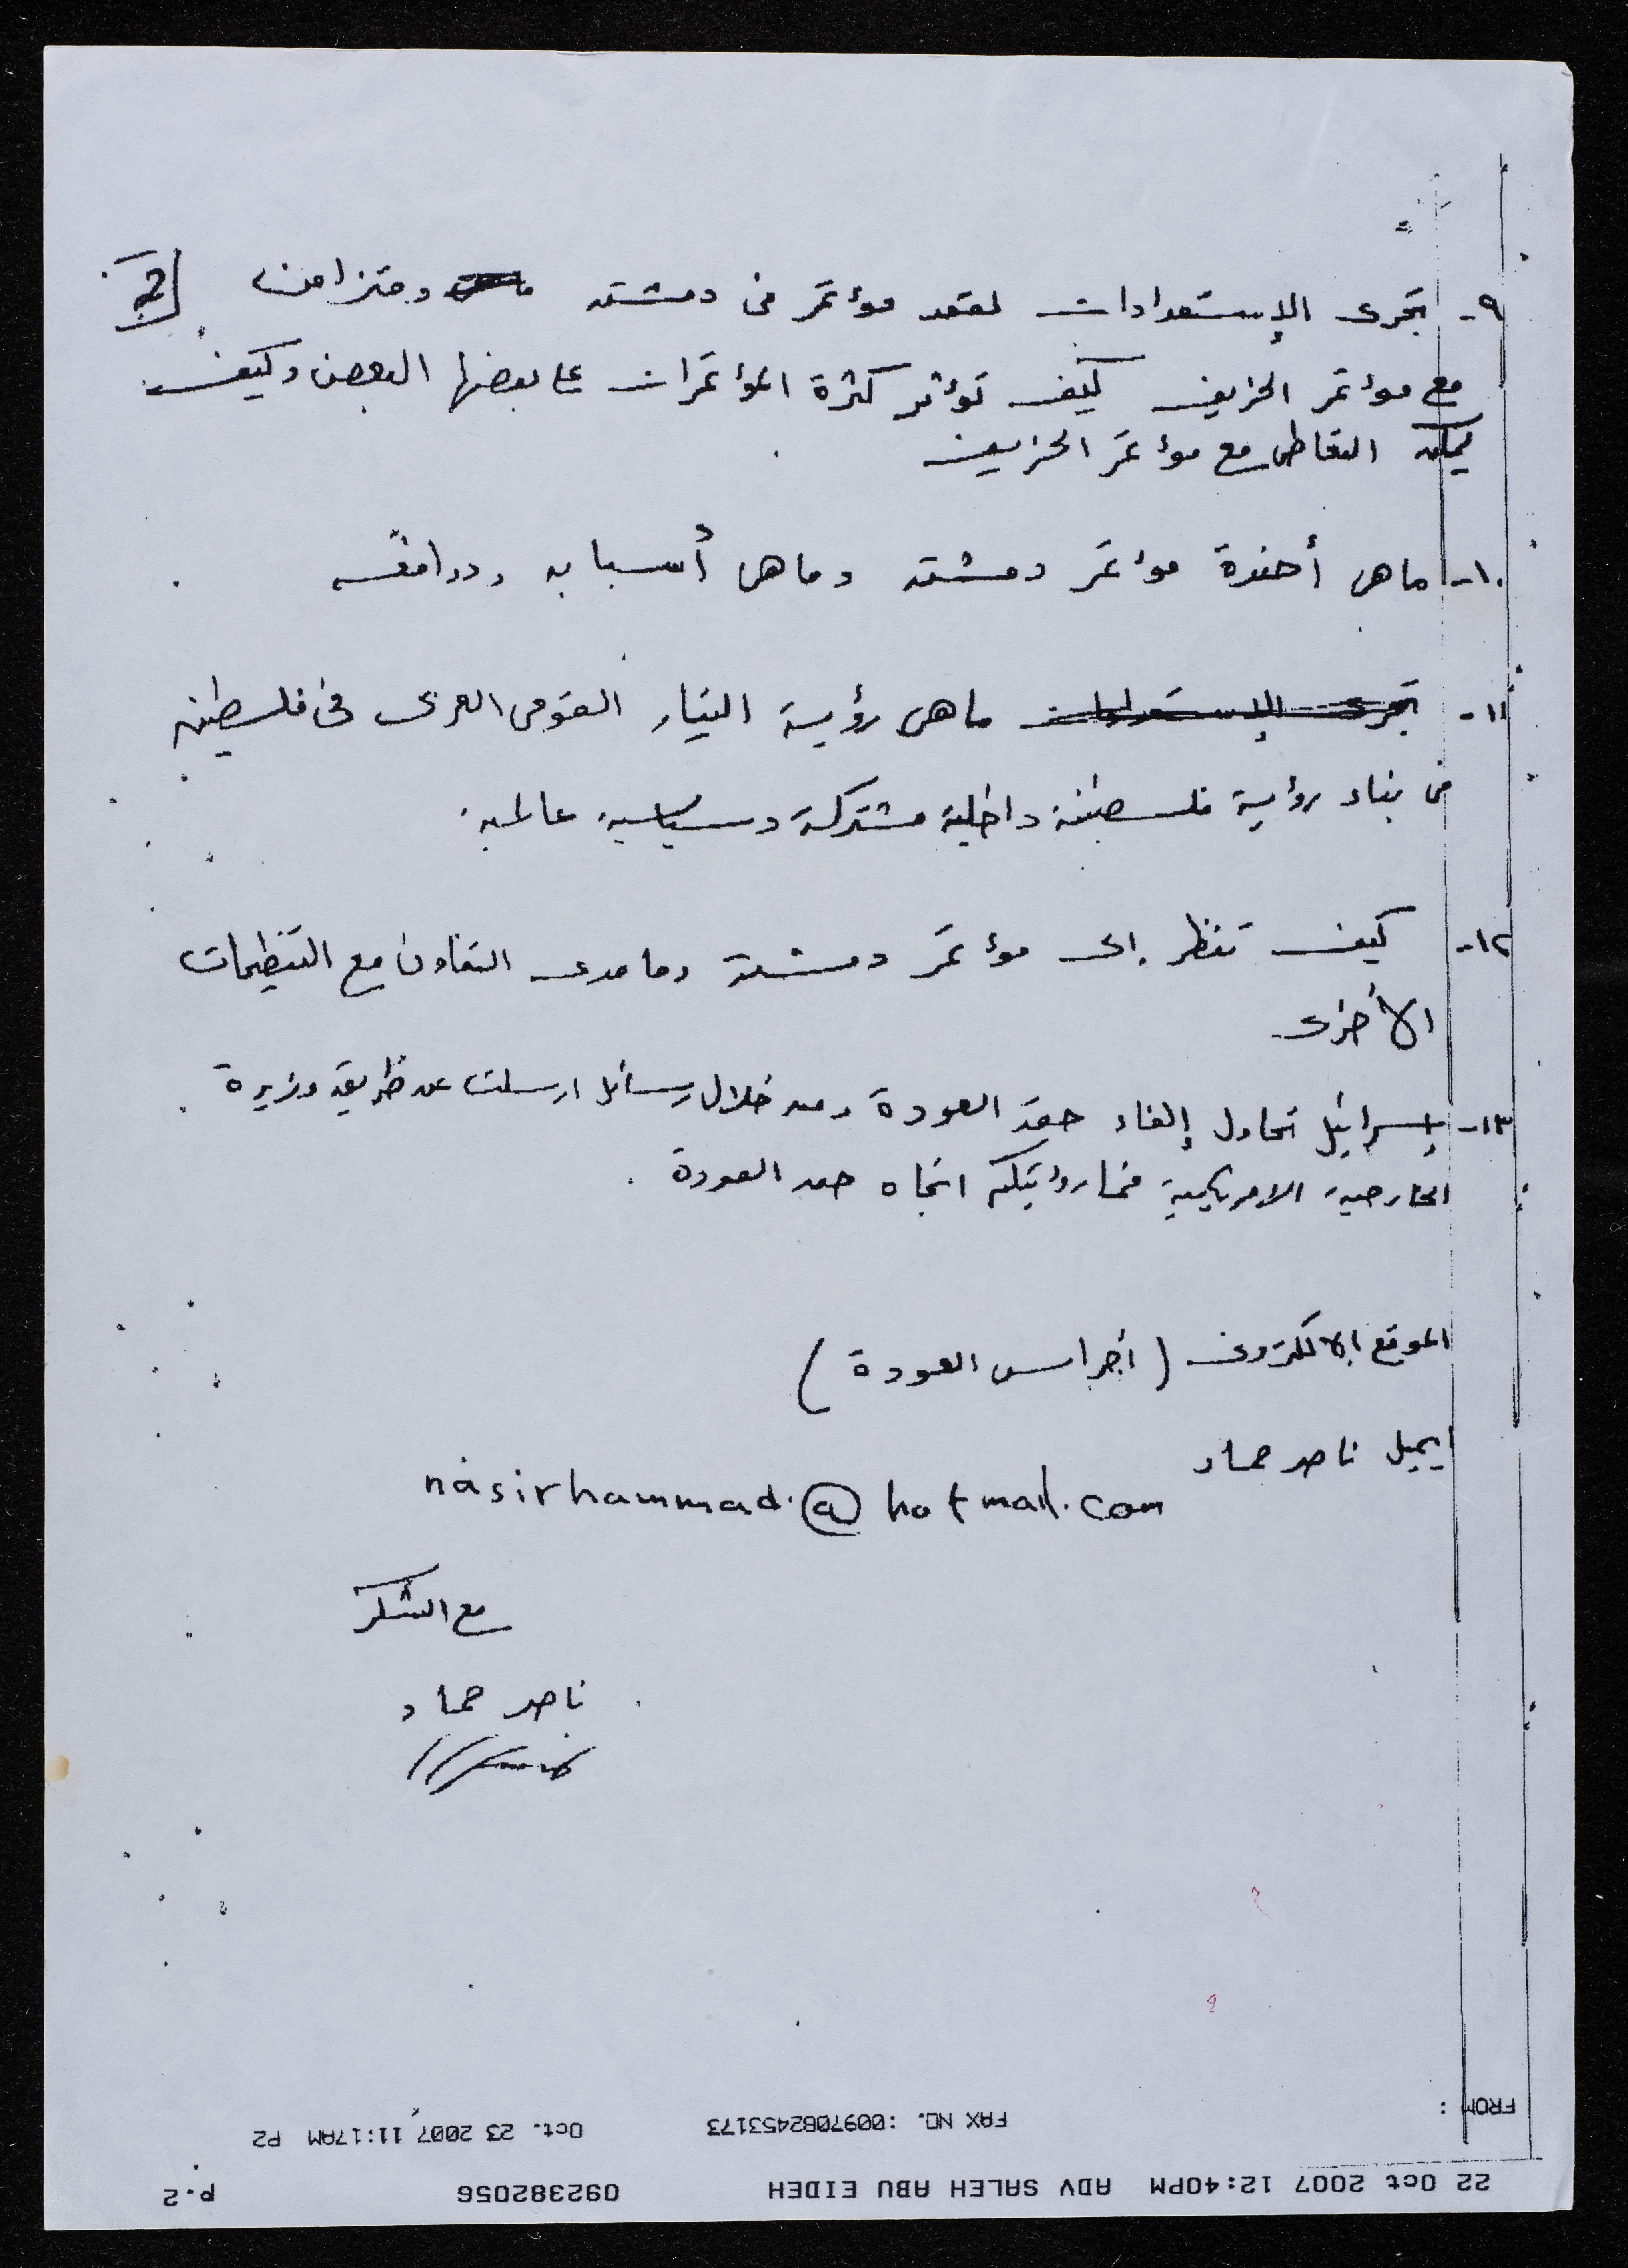 2
٩- تجرى الإستعدادات لعقد مؤتمر فى دمشق ومتزامن
مع مؤتمر الخريف كيف تؤثر كثرة المؤتمرات على بعضها البعض وكيف
يمكن التعاطى مع مؤتمر الخريف
١٠- ماهى أجندة مؤتمر دمشق وماهى أسبابه ودوافعه
١١- تجرى الإستعدادات ماهى رؤية التيار القومى العربى فى فلسطين
فى بناء رؤية فلسطينية داخلية مشتركة وسياسية عالمية
١٢- كيف تنظر إلى مؤتمر دمشق وما مدى التعاون مع التنظيمات
الأخرى
١٣- إسرائيل تحاول إلغاء حق العودة ومن خلال رسائل ارسلت عن طريق وزيرة
الخارجية الامريكية فما رؤيتكم اتجاه حق العودة
الموقع الالكترونى (أجراس العودة)
ايميل ناصر حماد
nasirhammad@hotmail.com
مع الشكر
ناصر حماد
FROM : FAX NO. :0097082453173 Oct. 23 2007 11:17AM P2
22 Oct 2007 12:40PM ADV SALEH ABU EIDEH 092382056 p.2